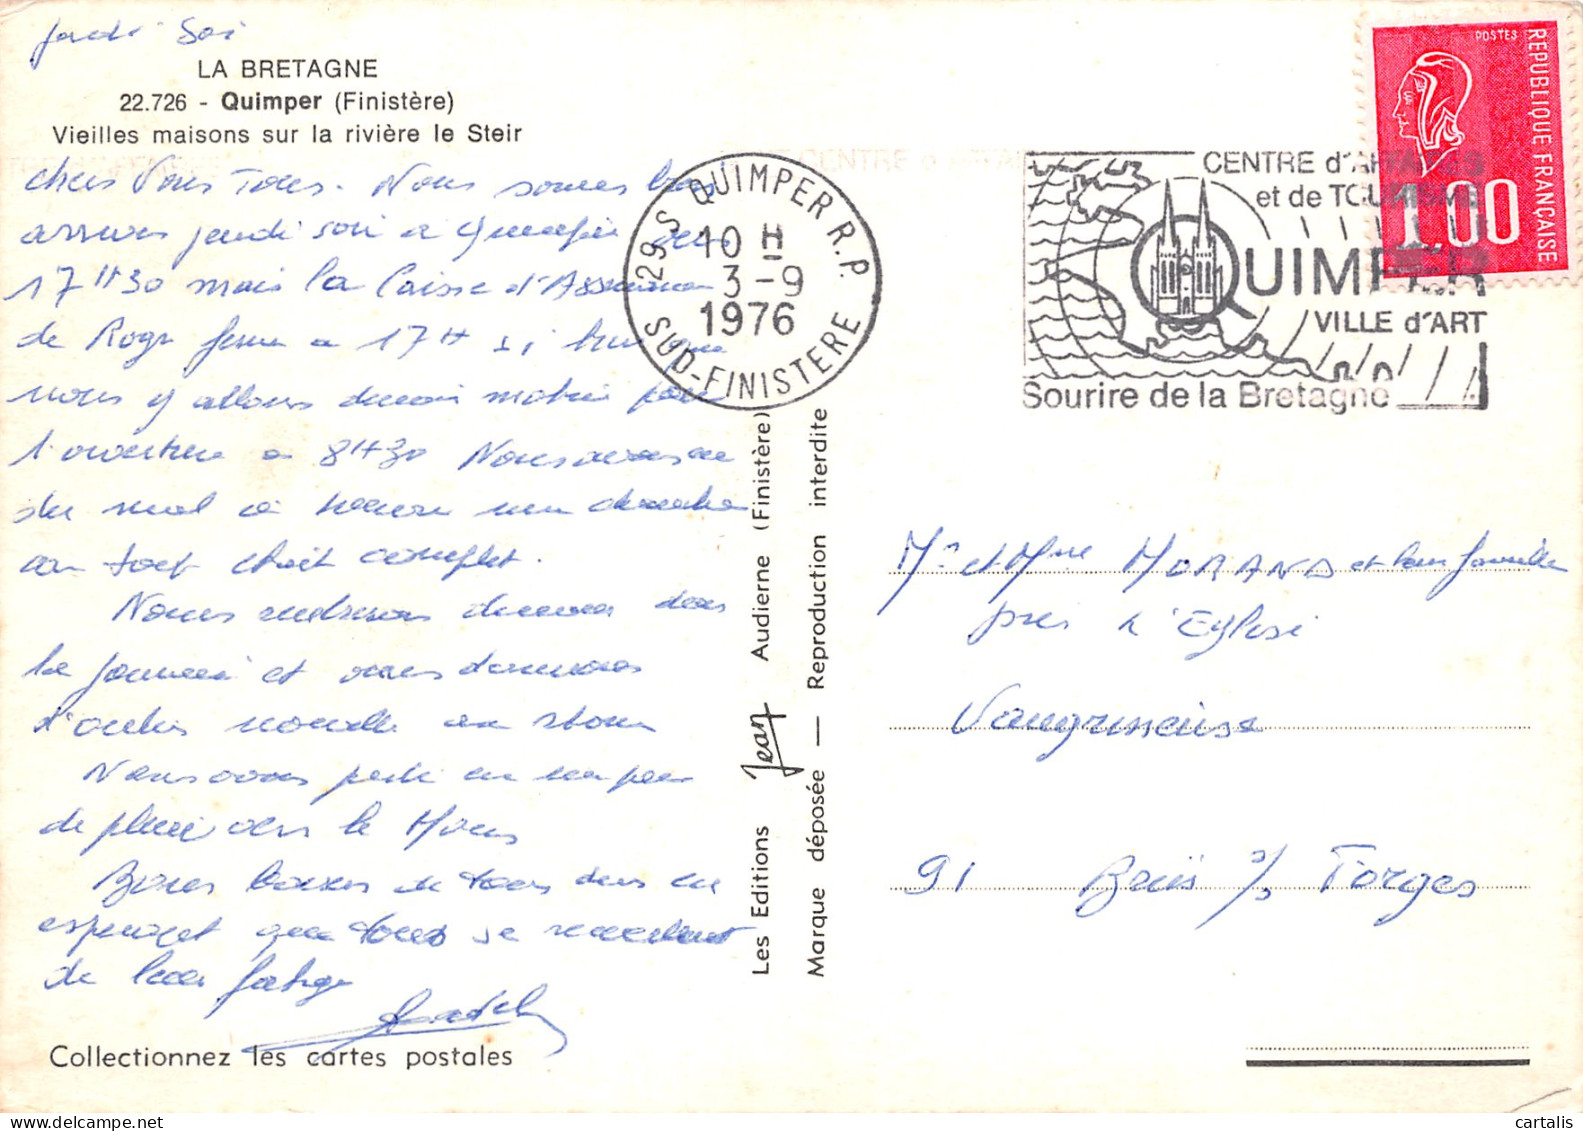 jeudi Soir
LA BRETAGNE
22.726 - Quimper (Finistère)
Vieilles maisons sur la rivière le Steir
chers Vous Tous. Nous sommes bien
arrivés jeudi soir a Quimper vers
17H30 mais la Caisse d'Assurances
de Roger ferme a 17H si bien que
nous y allons demain matin pour
l'ouverture a 8H30 Nous avons eu
du mal a trouver une chambre
car tout était complet.
Nous rentrerons demain dans
la journée et vous donnerons
d'autres nouvelles au retour
Nous avons parti eu un peu
de pluie vers le Mans
Bons baisers de tous deux en
espérant que tous se remettent
de leur fatigue
Collectionnez les cartes postales
Les Editions Jean Audierne (Finistère)
Marque déposée — Reproduction interdite
29 S QUIMPER R.P.
10 H
3-9
1976
SUD-FINISTERE
CENTRE d'AFFAIRES
et de TOURISME
QUIMPER
VILLE d'ART
Sourire de la Bretagne
POSTES
REPUBLIQUE FRANÇAISE
1,00
Mr et Mme MORAND et leur famille
près de l'Eglise
Vaugrigneuse
91 Briis s/s Forges
cartalis